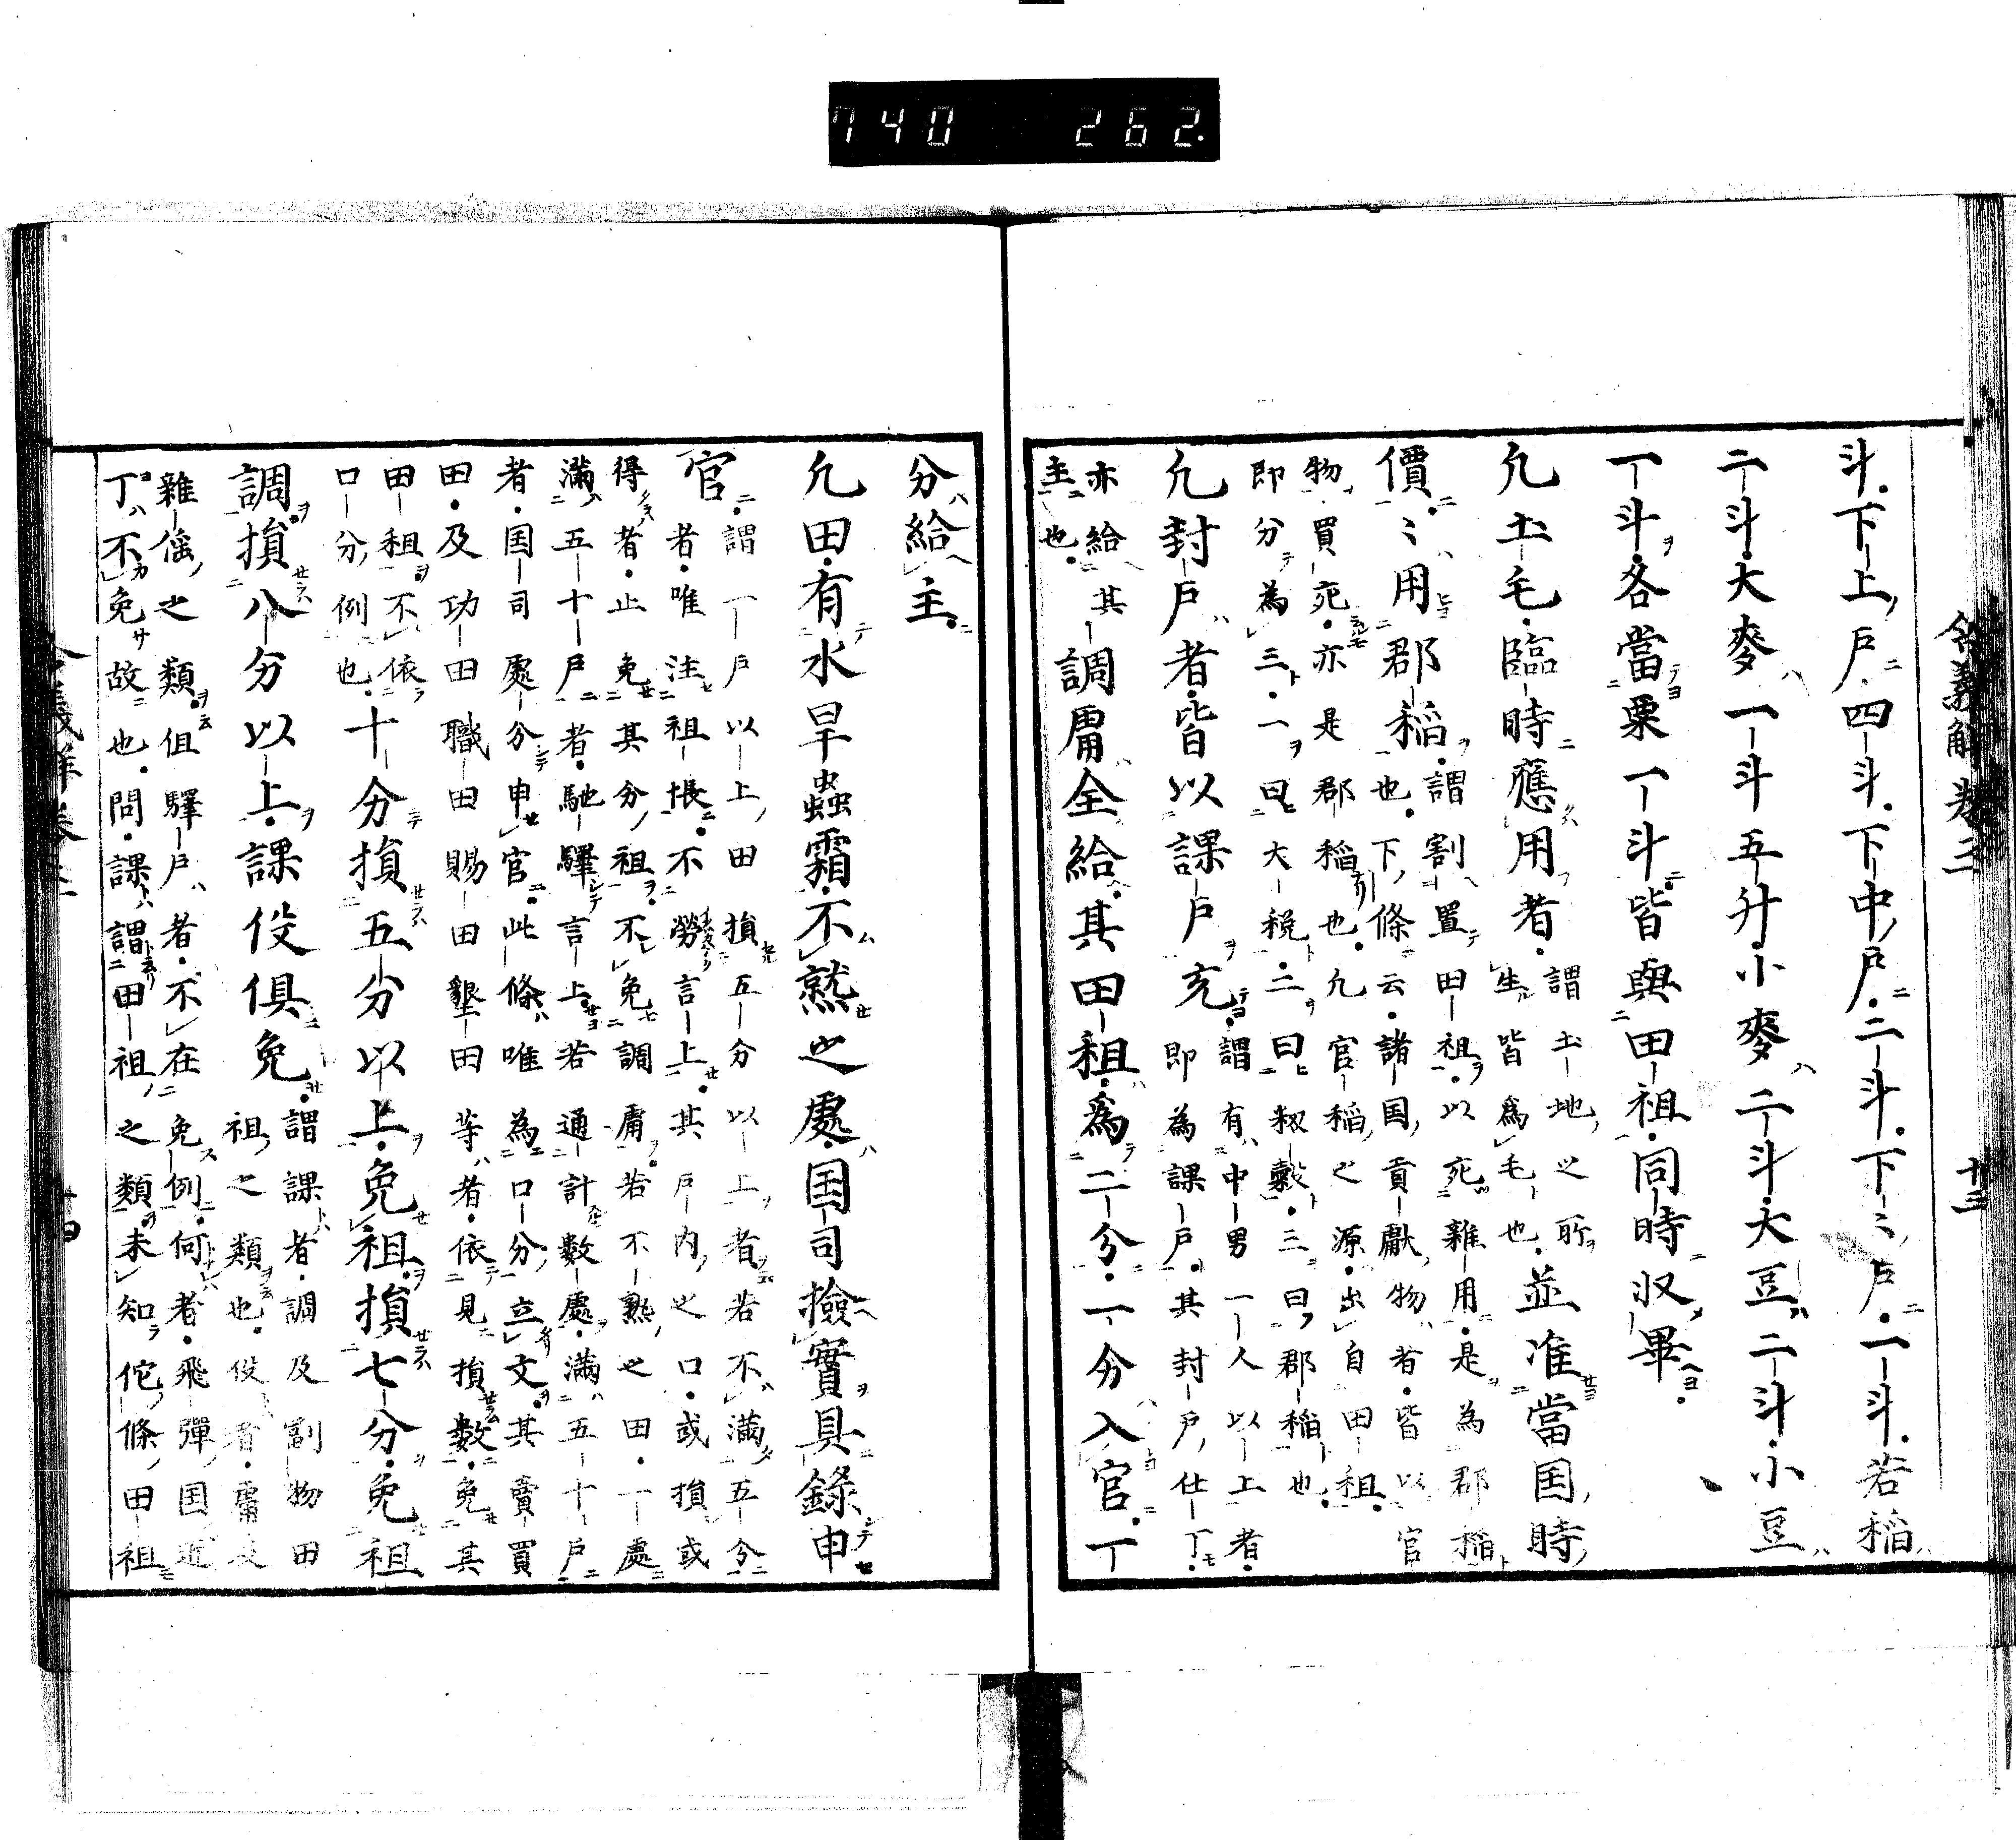 740 262
令義解卷三
十三
斗下上戸四斗下中戸二斗下〻戸一斗若稲
二斗大麥一斗五升小麥二斗大豆二斗小豆
一斗各當粟一斗皆與田租同時収畢
凢土毛臨時應用者謂土地之所
生皆為毛也並准當国時
價〻用郡稲謂割置田租以死雜用是為郡稲
也下條云諸国貢獻物者皆以官
物買死亦是郡稲也凢官稲之源出自田租
即分為三一曰大税二曰籾糓三曰郡稲也
凢封戸者皆以課戸充謂有中男一人以上者
即為課戸其封戸仕丁
亦給其
主也調庸全給其田租為二分一分入官丁
分給主
凢田有水旱蟲霜不熟之處国司撿實具錄申
官謂一戸以上田損五分以上者若不滿五分
者唯注租帳不勞言上其戸内之口或損或
得者止免其分租不免調庸若不熟之田一處
滿五十戸者馳驛言上若通計數處滿五十戸
者国司處分申官此條唯為口分立文其賣買
田及功田職田賜田墾田等者依見損數免其
田租不依
口分例也十分損五分以上免租損七分免租
調損八分以上課伇俱免謂課者調及副物田
租之類也伇者庸
雜傜之類但驛戸者不在免例何者飛彈国
丁不免故也問課謂田租之類未知佗條田租